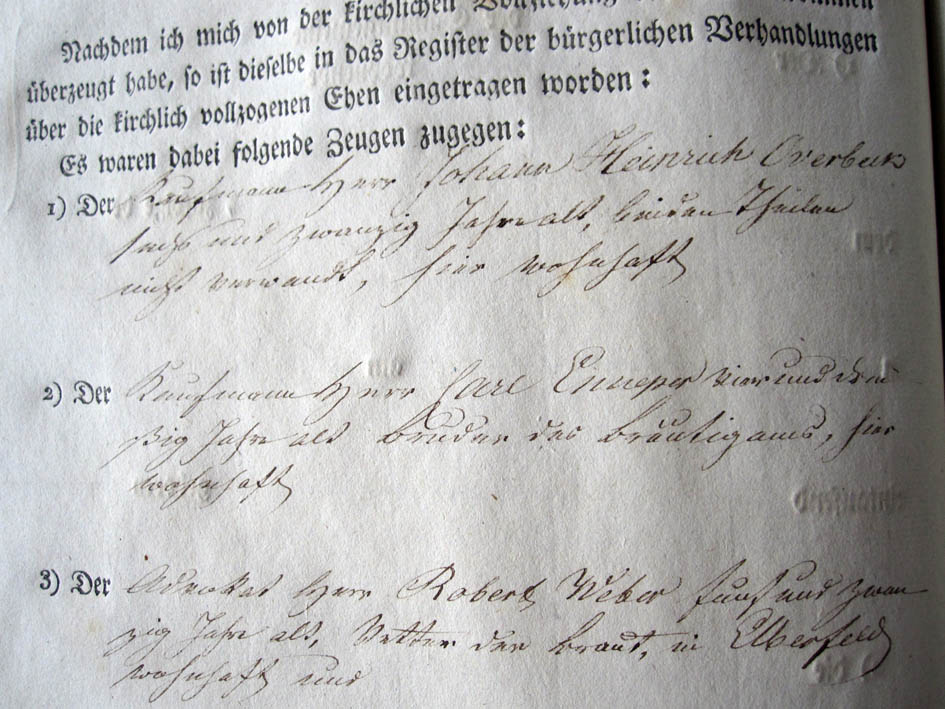 Nachdem ich mich von der kirchlichen Vollziehung
überzeugt habe, so ist dieselbe in das Register der bürgerlichen Verhandlungen
über die kirchlich vollzogenen Ehen eingetragen worden:
Es waren dabei folgende Zeugen zugegen:
1) Der Kaufmann Herr Johann Heinrich Overbeck
sechs und zwanzig Jahre alt, beiden Theilen
nicht verwandt, hier wohnhaft
2) Der Kaufmann Herr Carl Enneper vier und drei-
ßig Jahre alt Bruder des Bräutigams, hier
wohnhaft
3) Der Advokat Herr Robert Weber fünf und zwan
zig Jahre alt, Vetter der Braut, in Elberfeld
wohnhaft und